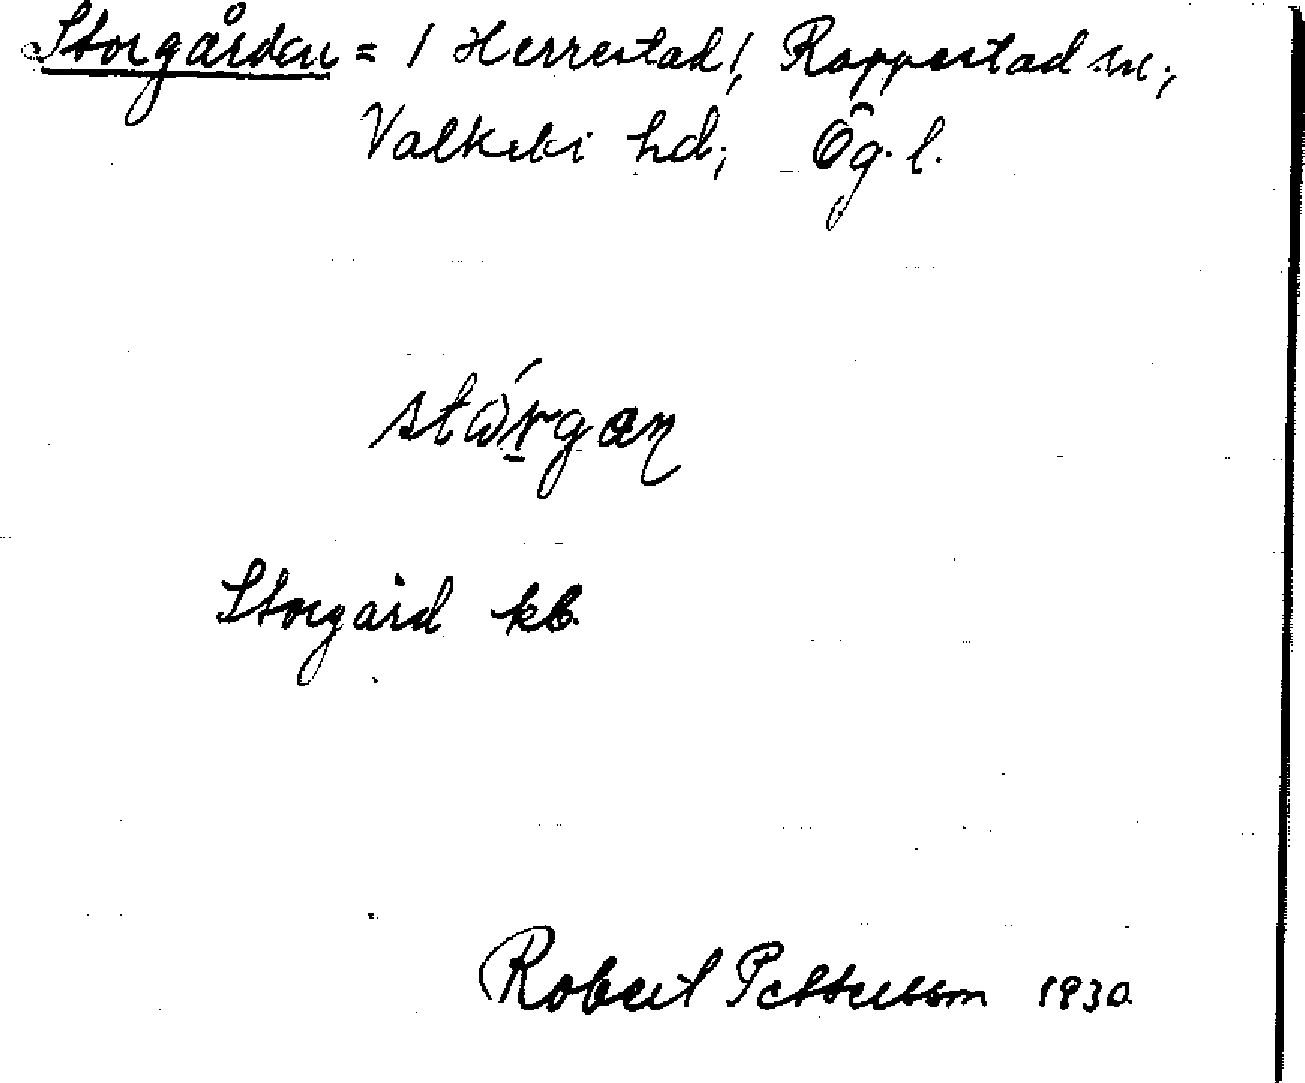 Storgården = / Herrestad /, Rappestad sn;
Valkebo hd; Ög. l.
Storgård kb.
Robert Pettersson 1930